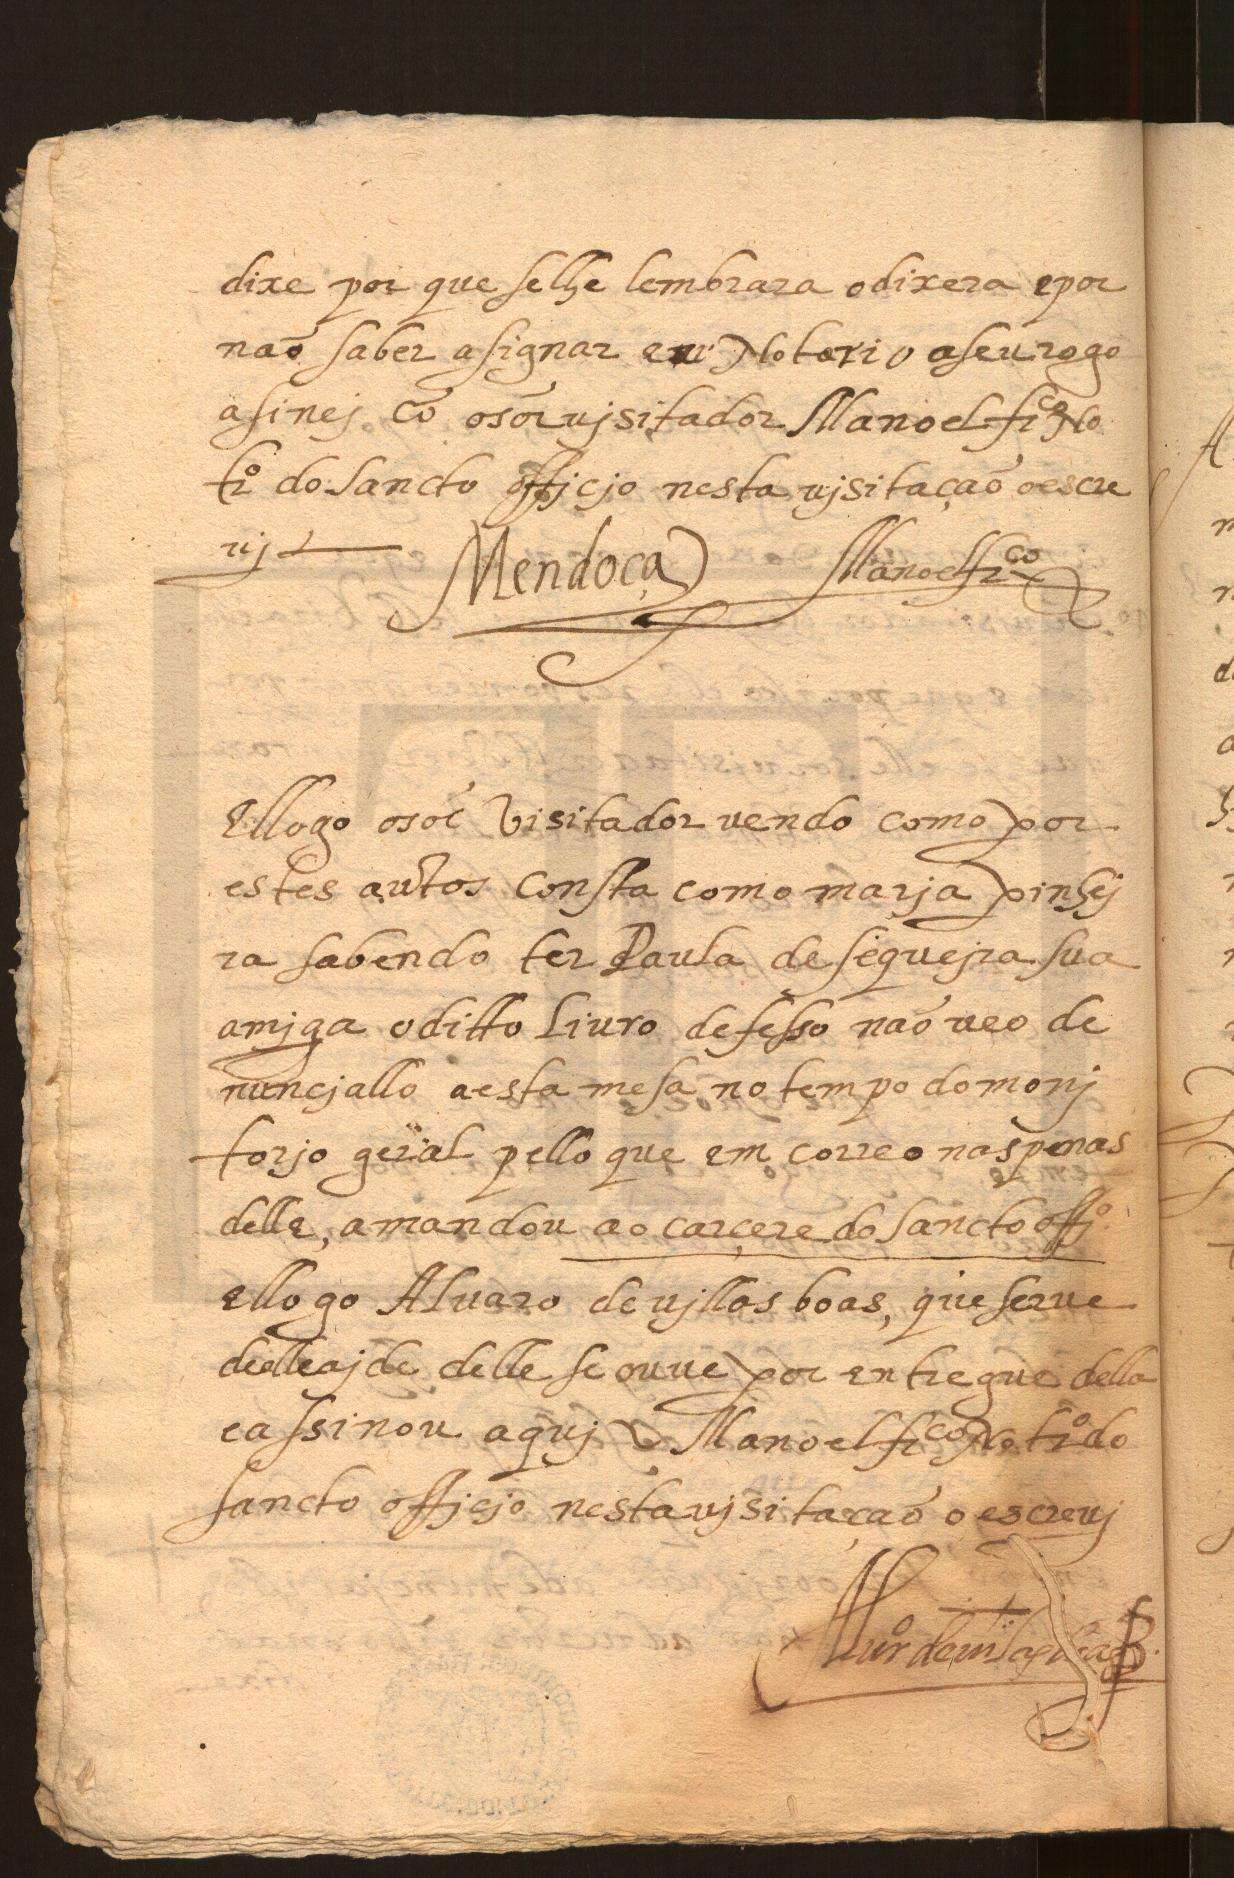 dixe por que se lhe lembrara o dixera e por
não saber asignar eu Notario a seu rogo
asinej cõ o sõr vjsitador Manoel frco No
tro do sancto officjo nesta vjsitação o escre
vj
Mendoça Manoel frco
E llogo o sor visitador vendo como por
estes autos consta como marja pinhej
ra sabendo ter Paula de sequejra sua
amjga o ditto livro defesso não veo de
nuncjallo a esta mesa no tempo do monj
torjo geral pello que emcorreo nas penas
delle, a mandou ao carçere do sancto offo
e llogo Alvaro de vjllas boas, que serve
de alleajde delle se ouve por entregue della
e assinou aquj Manoel frco Notro do
sancto officjo nesta vjsitação o escrevj